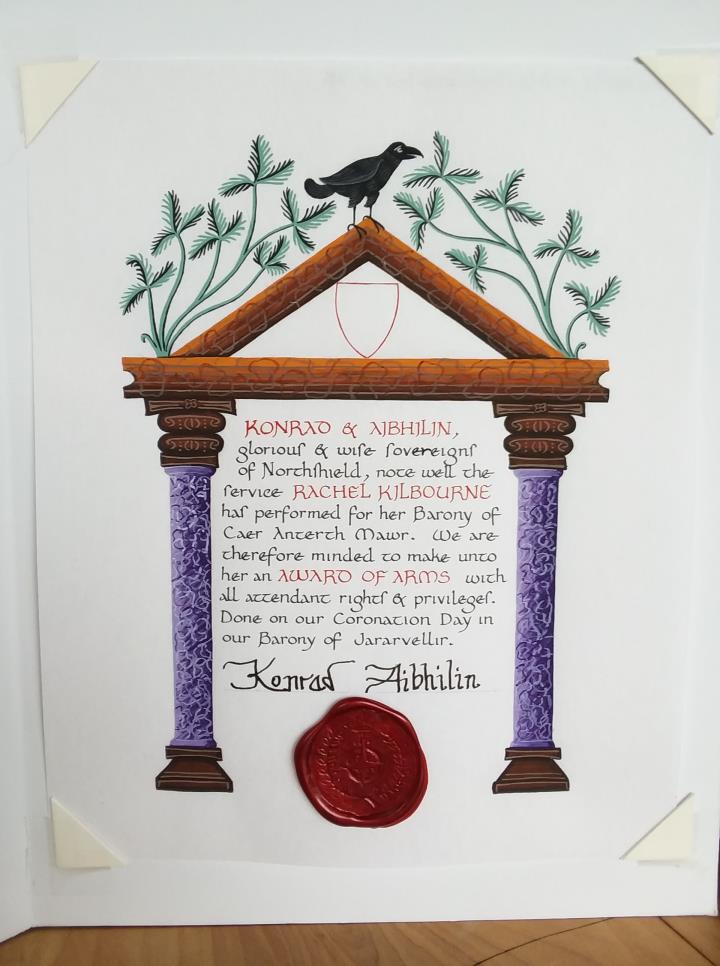 KONRAD & AIBHILIN,
glorious & wise sovereigns
of Northshield, note well the
service RACHEL KILBOURNE
has performed for her Barony of
Caer Anterth Mawr. We are
therefore minded to make unto
her an AWARD OF ARMS with
all attendant rights & privileges.
Done on our Coronation Day in
our Barony of Jararvellir.
Konrad Aibhilin